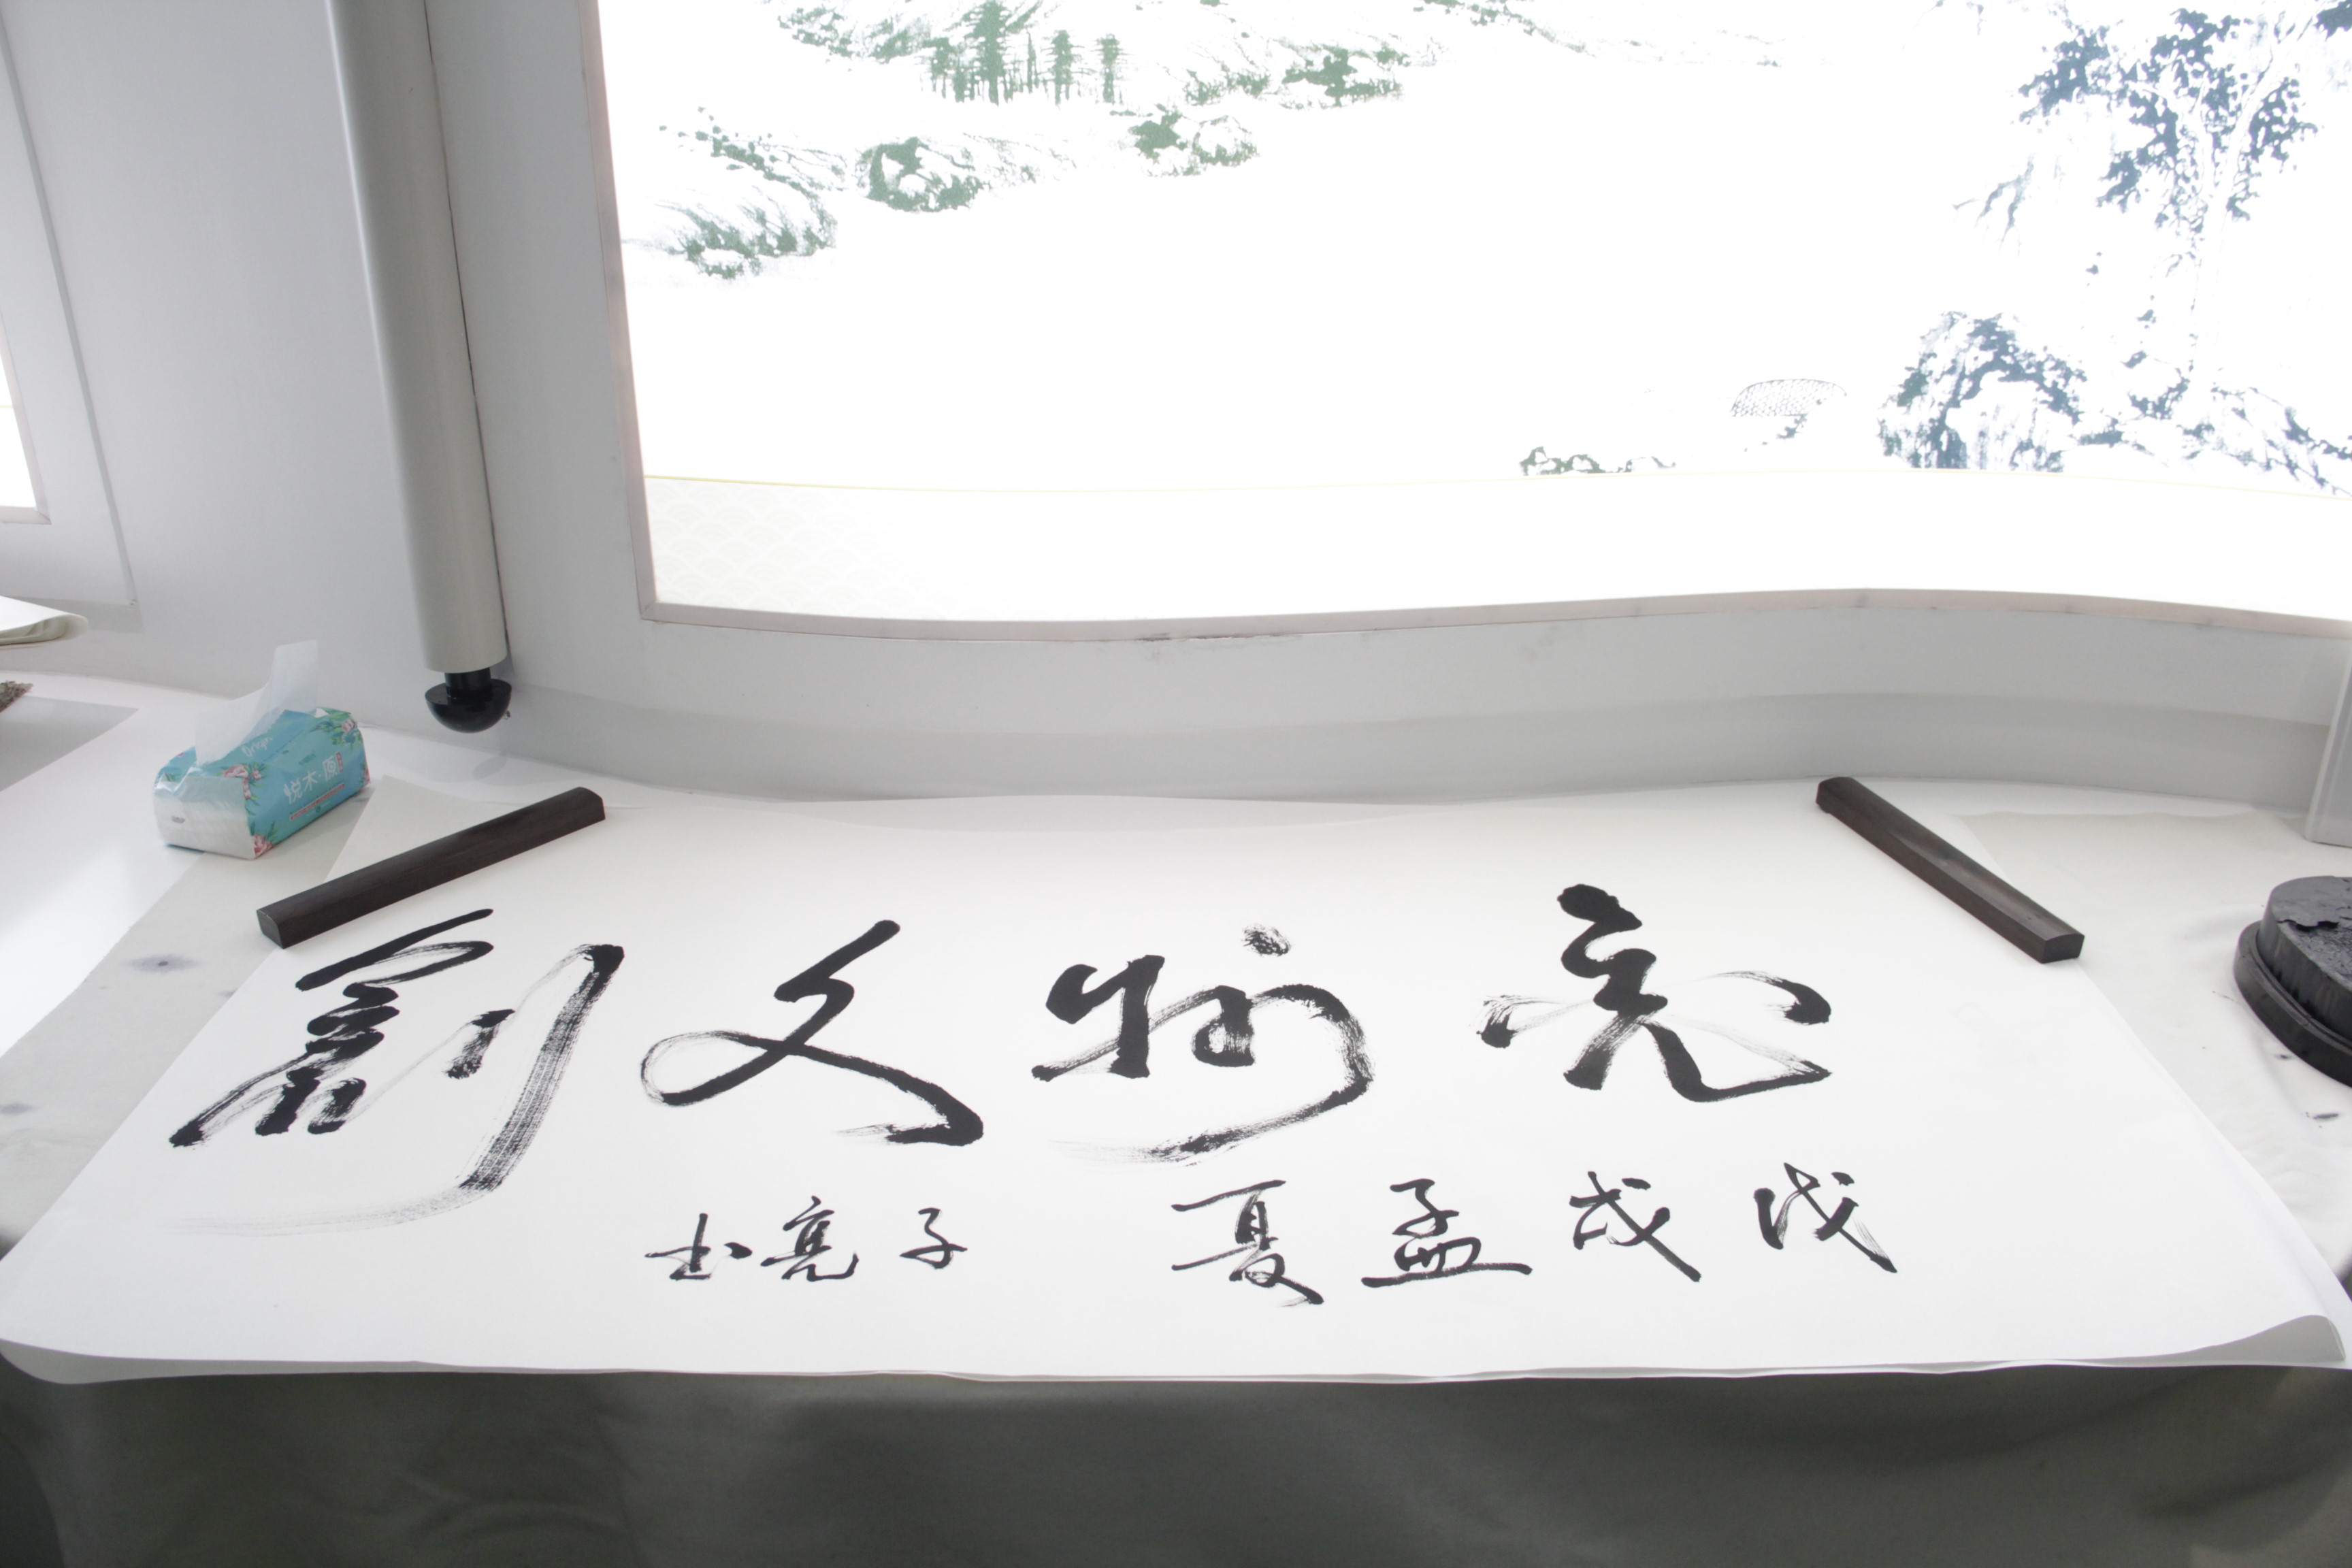 亮物文創
戊戌孟夏 子亮书
悦木·原